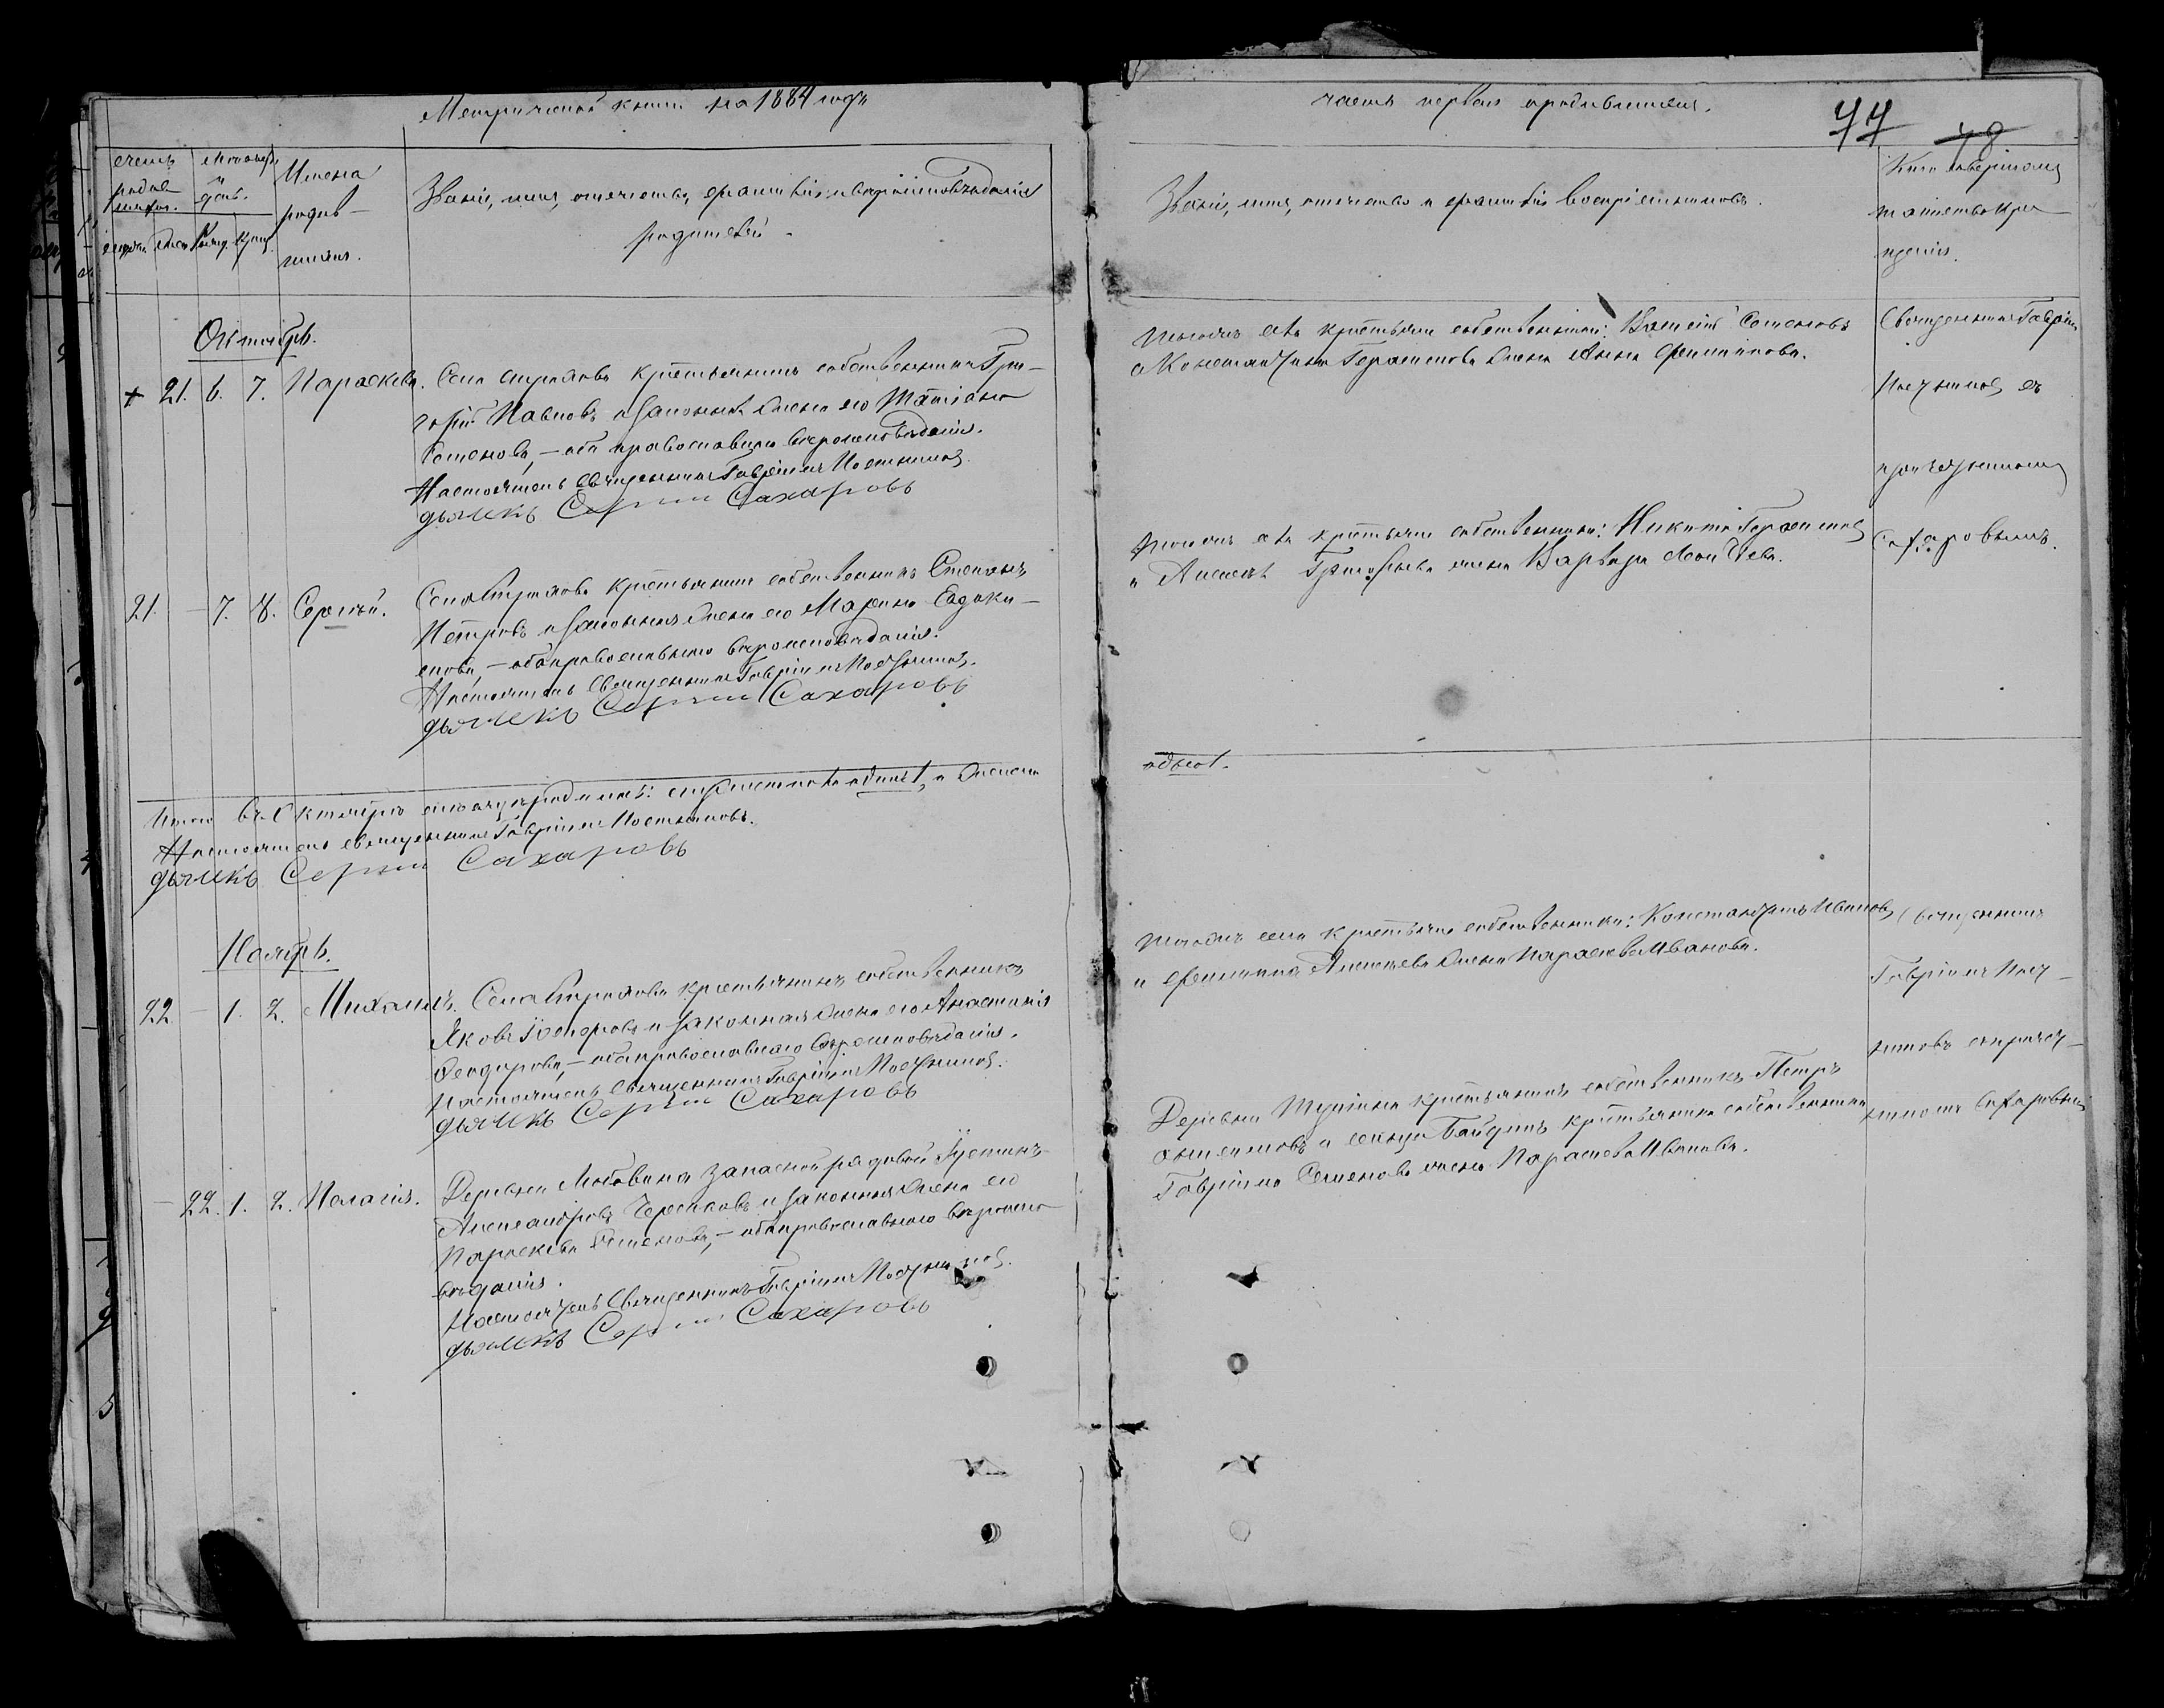 Метрической книги на 1884 годъ
часть первая о родившихся.
77 78
счетъ родив-
шихся.
Мѣсяцъ
и
день.
Имена
родив-
шихся.
Званіе, имя, отчество, фамилія и вѣроисповѣданіе
родителей.
Званіе, имя, отчество и фамилія воспріемниковъ.
Кто совершалъ
таинство кре-
щенія.
Октябрь.
21. 6. 7. Параскева.
Села крестьянинъ собственникъ Гри-
горій Павловъ и законная жена его Татіана
Семенова, – оба православнаго вѣроисповѣданія.
Настоятель священникъ Гавріилъ Постниковъ.
дьячекъ Сергѣй Сахаровъ
того же села крестьяне собственники: Василій Семеновъ
и Константина Герасимова жена Анна Филиппова.
Священникъ Гавріилъ
Постниковъ съ
причетникомъ
Сахаровымъ.
21. – 7. 8. Сергѣй.
Села крестьянинъ собственникъ Степанъ
Петровъ и законная жена его Марина Евдоки-
мова, – оба православнаго вѣроисповѣданія.
Настоятель священникъ Гавріилъ Постниковъ.
дьячекъ Сергѣй Сахаровъ
того же села крестьяне собственники: Никита Герасимовъ
и Алексѣя Григорьева жена Варвара
Итого въ Октябрѣ мѣсяцѣ родилось: мужескаго пола одинъ 1, а женска
одной 1.
Настоятель священникъ Гавріилъ Постниковъ.
дьячекъ Сергѣй Сахаровъ
Ноябрь.
22 – 1. 2. Михаилъ.
Села крестьянинъ собственникъ
Яковъ и законная жена его Анастасія
Феодорова, – оба православнаго вѣроисповѣданія.
Настоятель священникъ Гавріилъ Постниковъ.
дьячекъ Сергѣй Сахаровъ
того же села крестьяне собственники: Константинъ Ивановъ
и Филиппа Алексѣева жена Параскева Иванова.
Священникъ
Гавріилъ Пост-
никовъ съ причет-
никомъ Сахаровымъ
– 22. 1. 2. Пелагія.
Деревни запасной рядовой Іустинъ
Александровъ и законная жена его
Параскева Семенова, – оба православнаго вѣроиспо-
вѣданія.
Настоятель Священникъ Гавріилъ Постниковъ.
дьячекъ Сергѣй Сахаровъ
Деревни крестьянинъ собственникъ Петръ
и сельца крестьянина собственника
Гавріила Семенова жена Параскева Иванова.